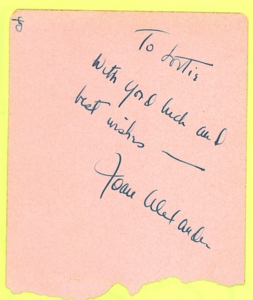 To
With good luck and
best wishes —
Joan Alexander